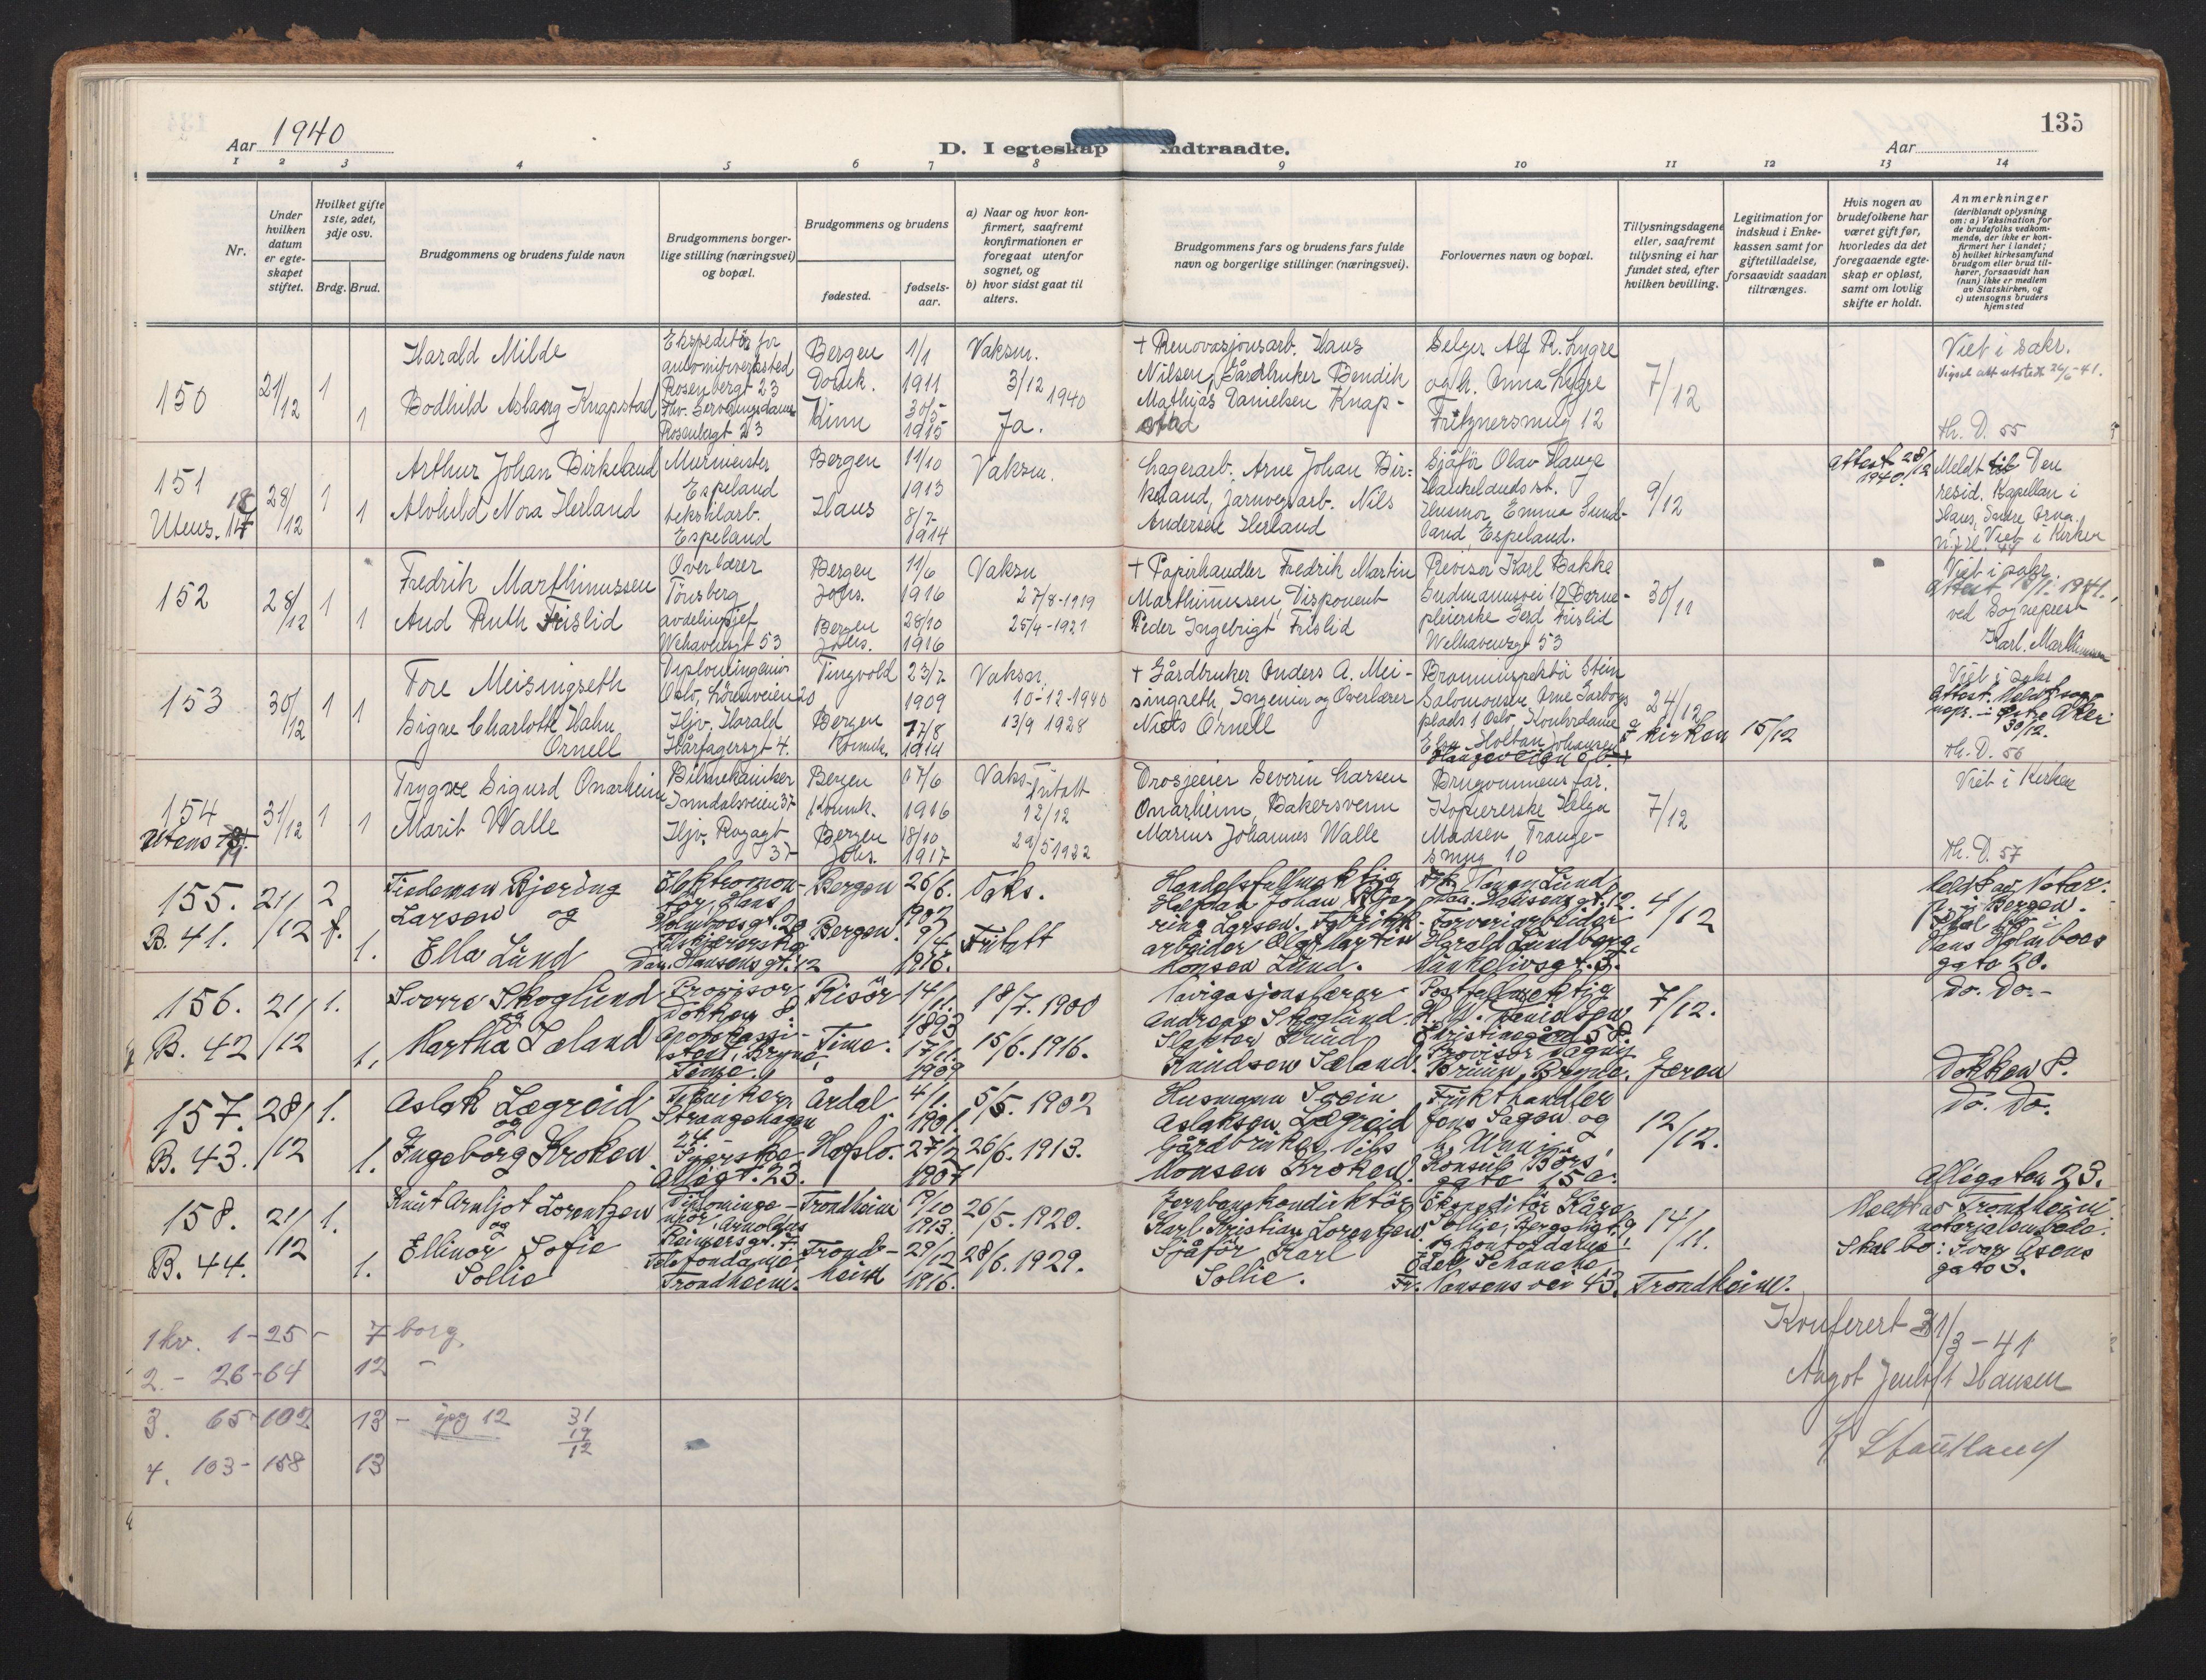 Aar 1940
D. I egteskap indtraadte.
Aar
135
1 2 3 4 5 6 7 8 9 10 11 12 13 14
Nr.
Under hvilken datum er egteskapet stiftet.
Hvilket gifte 1ste, 2det, 3dje osv.
Brdg. Brud.
Brudgommens og brudens fulde navn
Brudgommens borgerlige stilling (næringsvei) og bopæl.
Brudgommens og brudens
fødested.
fødsels-aar.
a) Naar og hvor konfirmert, saafremt konfirmationen er foregaat utenfor sognet, og
b) hvor sidst gaat til alters.
Brudgommens fars og brudens fars fulde navn og borgerlige stillinger (næringsvei).
Forlovernes navn og bopæl.
Tillysningsdagene eller, saafremt tillysning ei har fundet sted, efter hvilken bevilling.
Legitimation for indskud i Enkekassen samt for giftetilladelse, forsaavidt saadan tiltrænges.
Hvis nogen av brudefolkene har været gift før, hvorledes da det foregaaende egteskap er opløst, samt om lovlig skifte er holdt.
Anmerkninger
(deriblandt oplysning om: a) Vaksination for de brudefolks vedkommende, der ikke er konfirmert her i landet; b) hvilket kirkesamfund brudgom eller brud tilhører, forsaavidt han (hun) ikke er medlem av Statskirken, og c) utensogns bruders hjemsted
150
21/12
1
1
Harald Milde
Bodhild Aslaug Knapstad
Ekspeditør for
Rosenbergt 23
Rosenbergt 23
Bergen
Domk.
Kinn
1/1
1911
30/5
1915
Vaksn.
3/12 1940
Ja.
+ Renovasjonsarb. Hans
Nilsen, Gårdbruker Bendik
Mathias Danielsen Knap-
stad
Selger Alf R. Lygre
og h. Anna Lygre
Fritznersmug 12
7/12
Viet i sakr.
Vigsel att utstedt 26/6-41.
th. D. 55
151
Utens. 18
28/12
1
1
Arthur Johan Birkeland
Alvhild Nora Herland
Murmester
Espeland
tekstilarb.
Espeland
Bergen
Haus
11/10
1913
8/7
1914
Vaksn.
Lagerarb. Arne Johan Bir-
keland, Jarnvegsarb. Nils
Andersen Herland
Sjåfør Olav Hauge
Haukelandsst.
Husmor Emma Sund-
land, Espeland.
9/12
Attest 28/12 1940.
Meldt til Den
resid. Kapellan i
Haus, Indre Arna.
Viet i Kirken
152
28/12
1
1
Fredrik Marthinussen
Aud Ruth Frislid
Overlærer
Tønsberg
avdelingssjef
Wehavensgt 53
Bergen
Johs.
Bergen
Johs.
11/6
1916
28/10
1916
Vaksn
27/8-1919
25/4-1921
+ Papirhandler Fredrik Martin
Marthinussen, Disponent
Peder Ingebrigt Frislid
Revisor Karl Bakke
Gudmannsvei 12 Barne-
pleierske Gerd Frislid
Welhavensgt 53
30/11
Viet i sakr.
Attest 1941.
ved Sogneprest
Karl Marthinussen
153
30/12
1
1
Tore Meisingseth
Signe Charlotte Hahn
Ornell
Diplomingeniør
Oslo, Lönnveien 20
Hjv. Harald
Hårfagersgt 4.
Tingvold
Bergen
Domk.
23/7
1909
17/8
1914
Vaksn.
10-12-1940
13/9 1928
+ Gårdbruker Anders A. Mei-
singseth, Ingeniør og Overlærer
Niels Ornell
Branninspektør Stein
Salomonsen Arne Garborgs
plads 1 Oslo, Kontordame
Elsa Holtan Johansen
24/12
i kirken 15/12
Viet i sakr
Attest.
30/12.
th. D. 56
154
Utens 19
31/12
1
1
Trygve Sigurd Onarheim
Marit Walle
Bilmekaniker
Inndalsveien 37
Hjv. Rogagt
37
Bergen
Domk.
Bergen
Johs.
1916
18/10
1917
Vaks
Fritatt
12/12
29/5 1932
Drosjeeier Severin Larsen
Onarheim, Bakersvenn
Marius Johannes Walle
Brudgommens far.
Kopiererske Helga
Madsen Trange-
smug 10
7/12
Viet i Kirken
th. D. 57
155.
B. 41.
21/12
2
1.
Tiedeman Bjering
Larsen og
Ella Lund
Elektromon-
tør, Hans
Holmboesgt. 20
Dan. Hansens gt. 12
Bergen
Bergen.
26/6.
1902
9/4.
1916.
Vaks.
Fritatt
Handelsfullmektig
Halfdan Johan Bje-
ring Larsen. Fabrikk-
arbeider Olaf Martin
Monsen Lund.
Frk. Lund,
Dan. Hansens gt. 12.
Farveriarbeider
Harald Lundberg,
Munkelivsgt. 3.
4/12
Meldt av Notar.
p. i Bergen.
Skal bo:
Hans Holmboes
gate 20.
156.
B. 42
21/12
1.
1.
Sverre Skoglund
og
Martha Læland
Provisor
Dokken 8.
Apotekassi-
stent, Bryne,
Time.
Risör
Time.
14/11.
1893
17/11.
1909
18/7. 1900
15/6. 1916.
Navigasjonslærer
Andreas Skoglund.
Knudsen Læland.
Postfullmektig
H. W. Danielsen
Christinegård 58.
Provisor Dagny
Bruun, Bryne, Jæren
7/12.
Do. Do. -
Dokken 8.
157.
B. 43.
28/12
1.
1.
Aslak Lægreid
og
Ingeborg Kroken
Tekniker,
Strangehagen
24. -
Allégt. 23.
Årdal
Hafslo.
4/1.
1901.
27/2
1907
5/5. 1902
26/6. 1913.
Husmann Svein
Aslaksen Lægreid
Gårdbruker Nils
Monsen Kroken.
Frukthandler
Jens Sagen og
h. Unni,
Konsul Börs
gate 15a.
12/12.
Do. Do.
Allégaten 23.
158.
B. 44.
21/12
1.
1.
Knut Arnljot Lorentzen
og
Ellinor Sofie
Sollie
Diplominge-
niør, Arnoldus
Reimersgt. 7.
Telefondame,
Trondheim.
Trondheim
Trond-
heim
19/10
1913.
29/12
1916.
26/5. 1920.
28/6. 1929.
Jernbanekonduktör
Karl Kristian Lorentzen.
Sjåfør Karl
Sollie.
Ekspeditör Kåre
Sollie,
og kontordame
Edel Schancke,
Fr. Nansens vei 43, Trondheim.
14/11.
Meldt av Trondheim
notarialembede.
Skal bo: Ivar Asens
gate 3.
1 kv. 1-25 - 7 borg.
2. - 26-64 12 -
3. 65-102 13 - 12
31
19
12
4. 103-158 13
Konferert 31/3-41
Aagot Jentoft Hansen